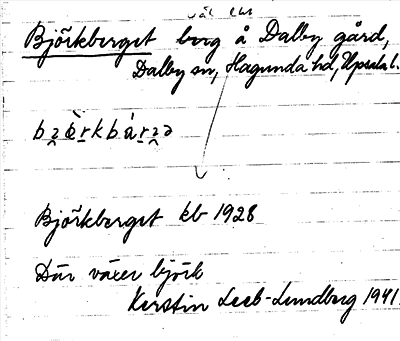 Björkberget berg å Dalby gård,
Dalby sn, Hagunda hd, Upsalal.
Björkberget kb 1928
Där växer björk
Kerstin Leeb-Lundberg 1941.